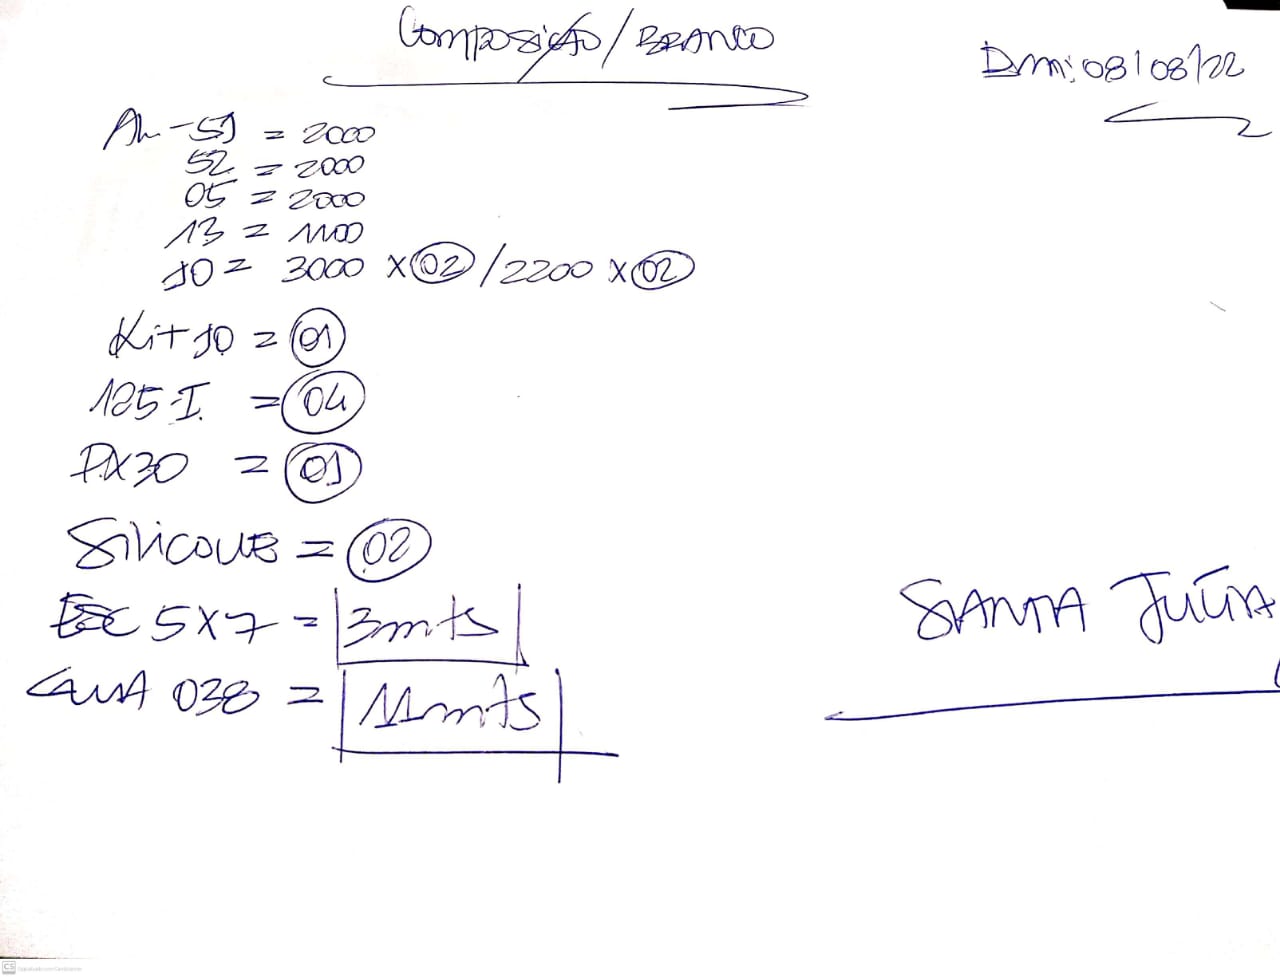 Composição/BRANCO
Dm: 08/08/22
AL-51 = 2000
52 = 2000
05 = 2000
13 = 1100
10 = 3000 x 02 / 2200 x 02
Kit 10 = 01
125-I. = 04
PX30 = 01
Silicone = 02
5x7 = 3mts
038 = 11mts
SANTA JULIA
CS